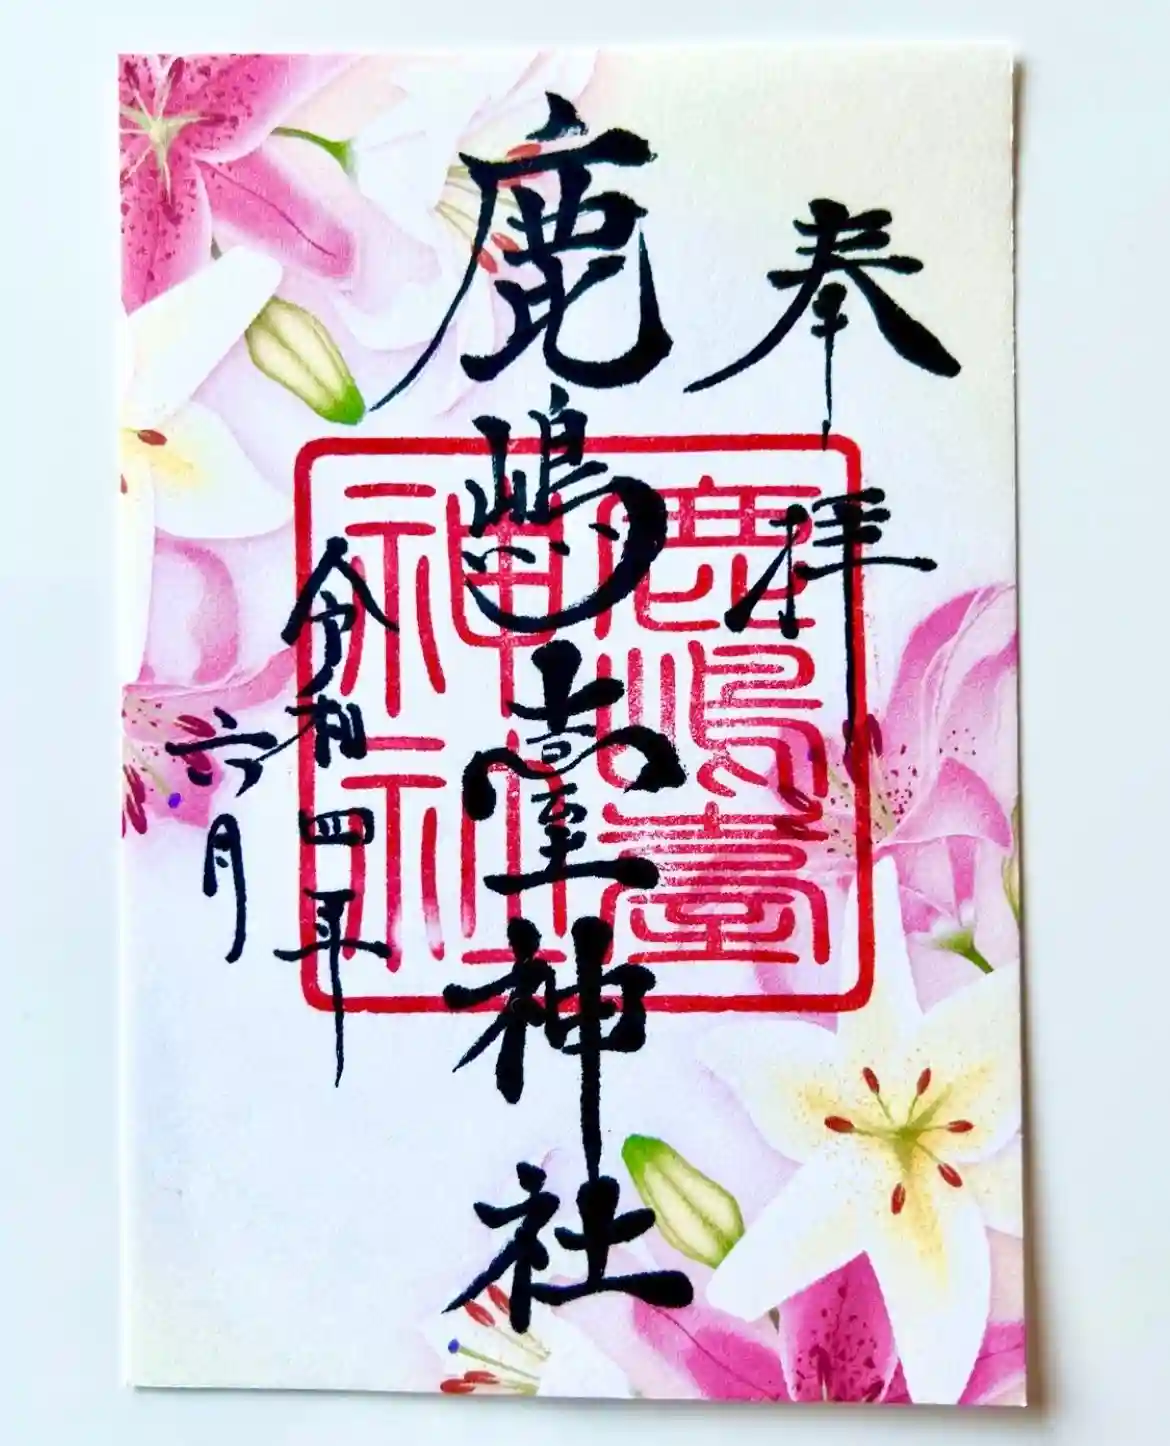 奉拝
鹿嶋臺神社
鹿嶋臺
神社
令和四年
六月